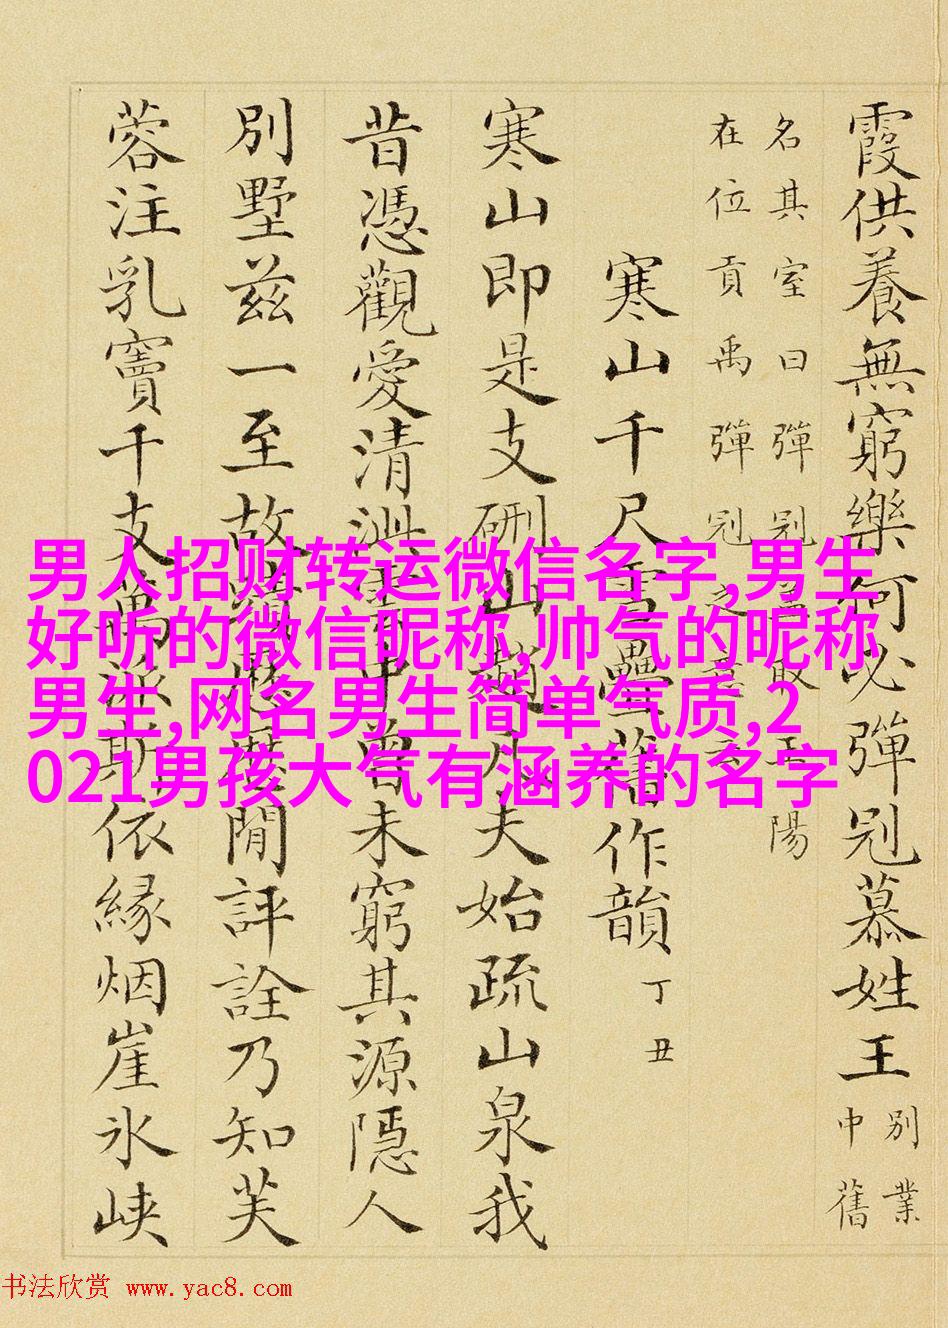 霞供養無窮樂何必彈冠慕姓王別業
中舊
名其室曰彈冠
取王陽
在位貢禹彈冠之
寒山千尺雪疊舊作韻丁丑
寒山即是支硎山
凡夫始疏山泉我
昔憑觀愛清
中曾未窮其源隱人
別墅茲一至故
閒評詮乃知芙
蓉注乳竇千支萬派斯依緣烟崖氷峽
男人招财转运微信名字,男生
好听的微信昵称,帅气的昵称
男生,网名男生简单气质,2
021男孩大气有涵养的名字
书法欣赏 www.yac8.com